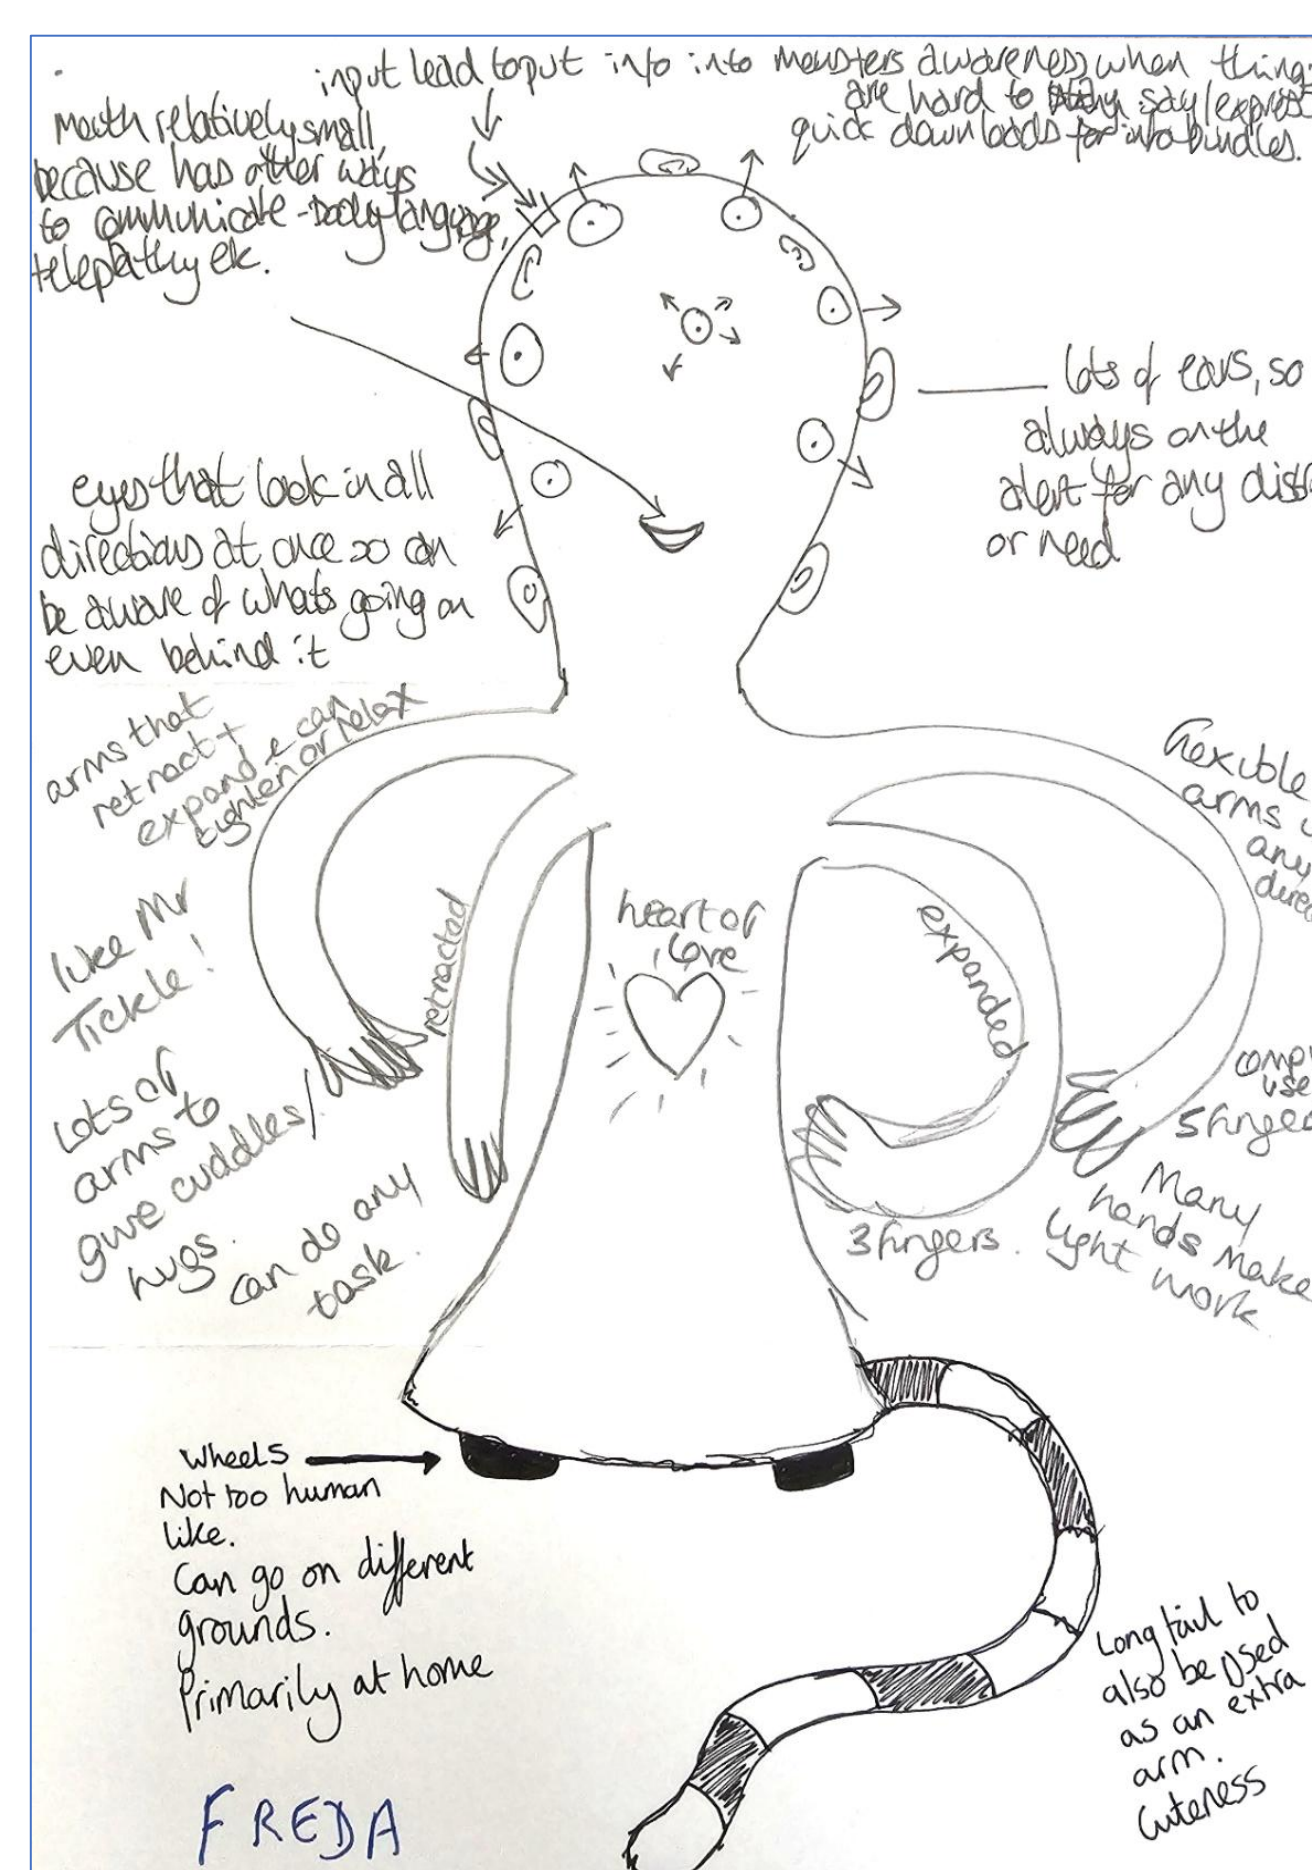 input lead to put info into monsters awareness, when thing
are hard to say/express
quick downloads for info bundles.
Mouth relatively small,
because has other ways
to communicate - body language,
telepathy etc.
lots of ears, so
always on the
alert for any dist
or need
eyes that look in all
directions at once so can
be aware of whats going on
even behind it
arms that
retract +
expand & can
tighten or relax
flexible
arms
any
direc
like Mr
Tickle!
retracted
heart of
love
expanded
Lots of
arms to
give cuddles/
hugs.
can do any
task.
use
5 finge
3 fingers.
Many
hands make
light work
Wheels
Not too human
like.
Can go on different
grounds.
Primarily at home
Long tail to
also be used
as an extra
arm.
Cuteness
FREDA